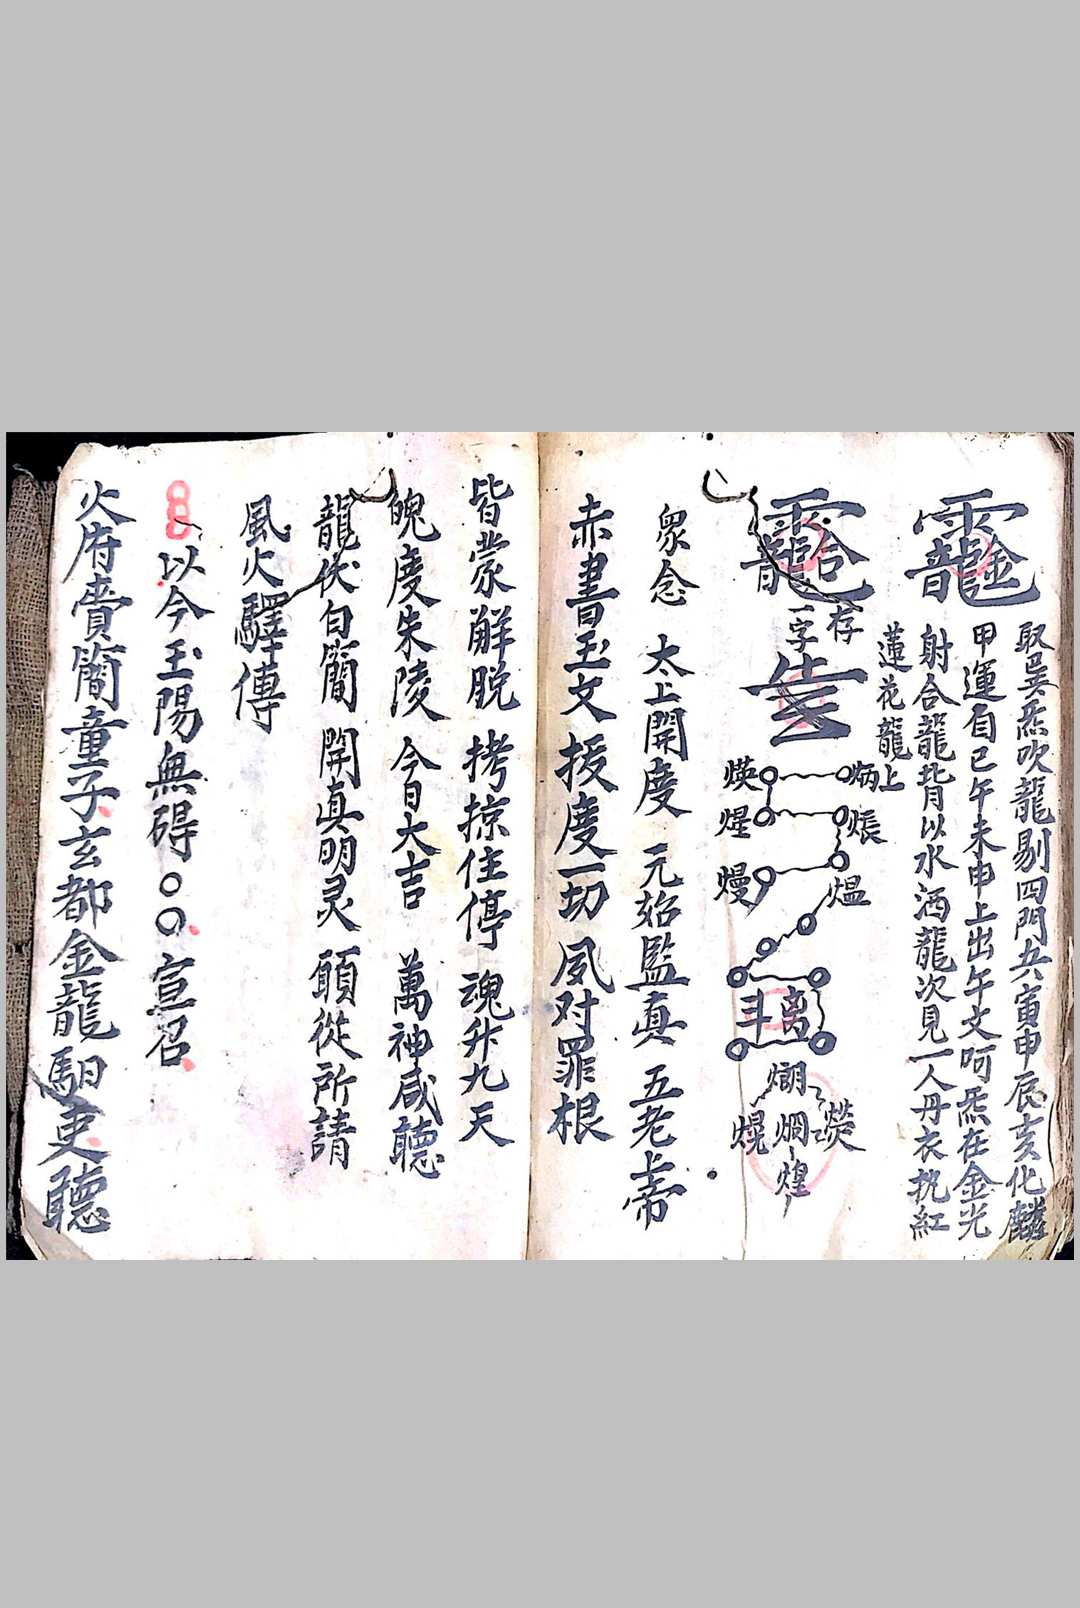 取巽炁吹龍剔四門共寅申辰亥化麟
甲運自巳午未申上出午文呵炁在金光
射合龍背以水洒龍次見一人丹衣执紅
蓮花龍上
存
一字
煐
炳
煋
煴
熳
斗
离
焩
熒
熀
烱
煌
衆念 太上開度 元始監真 五老上帝
赤書玉文 援度一切 夙对罪根
皆蒙解脱 拷掠住停 魂升九天
魄度朱陵 今日大吉 萬神咸聽
龍伏白簡 開真明灵 願從所請
風火驛傳
以今玉陽無碍〇〇宣召
火府賫簡童子玄都金龍馹吏聽